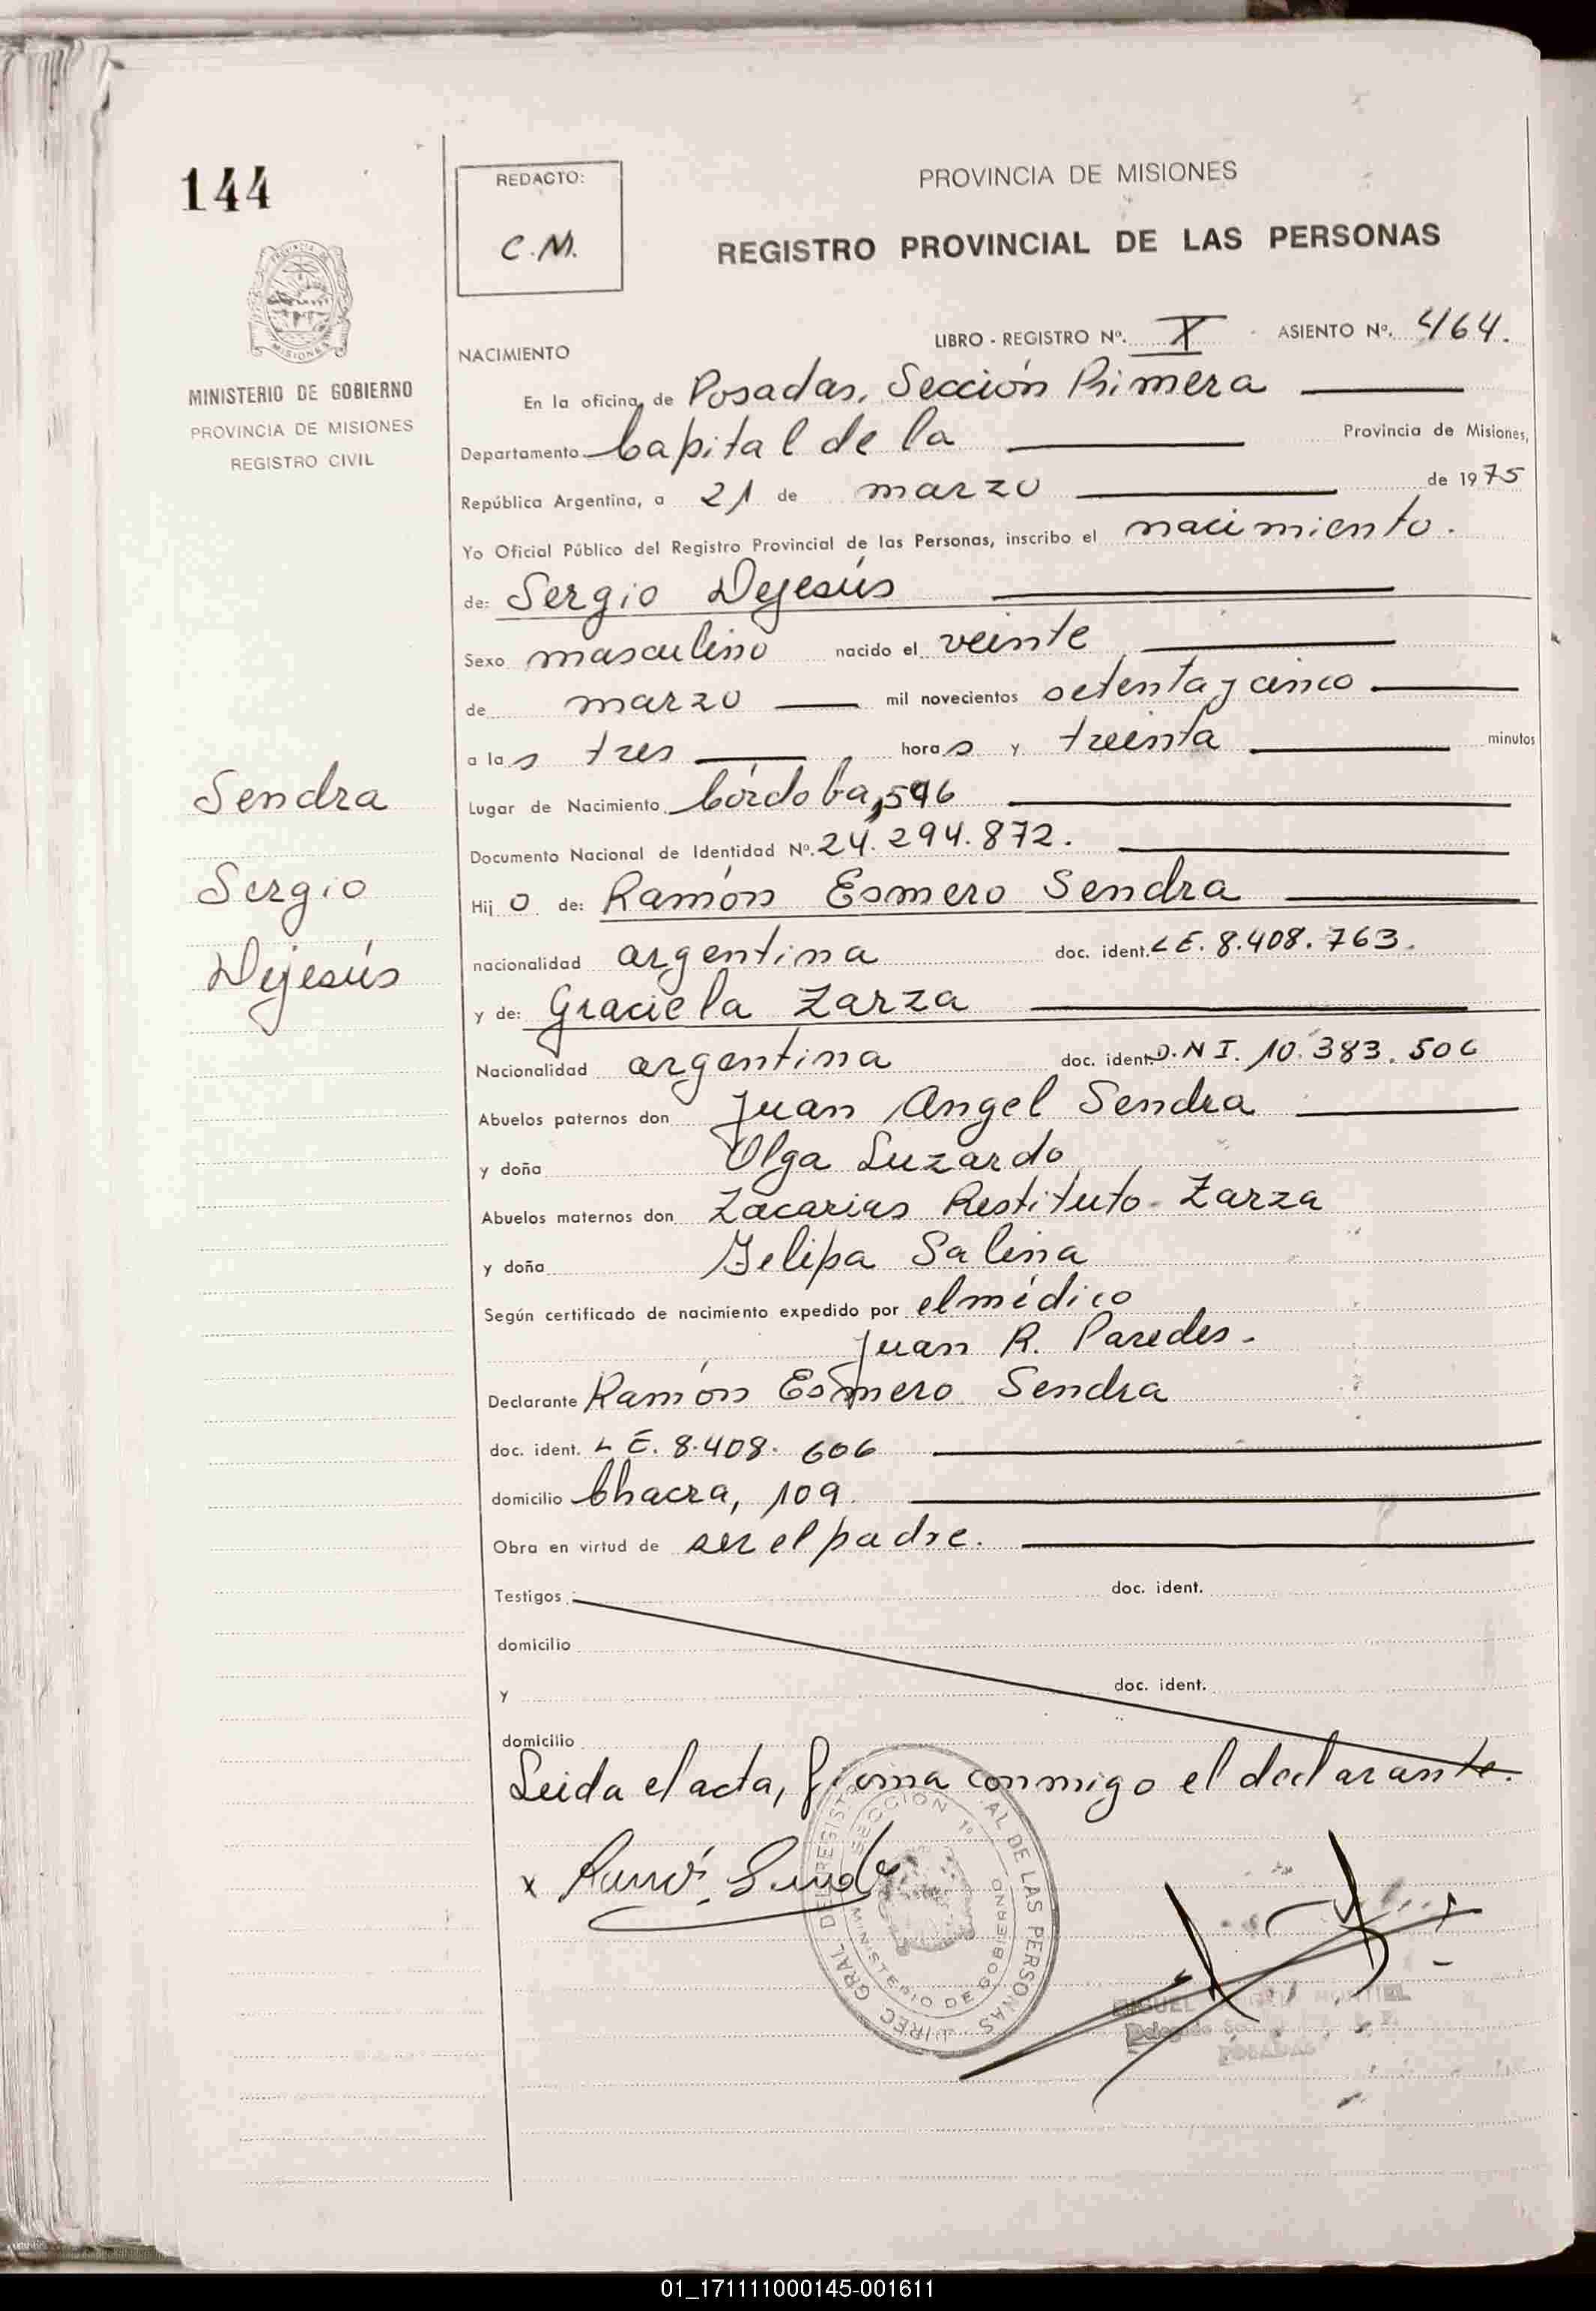 144
REDACTO:
C.M.
PROVINCIA DE MISIONES
REGISTRO PROVINCIAL DE LAS PERSONAS
MINISTERIO DE GOBIERNO
PROVINCIA DE MISIONES
REGISTRO CIVIL
LIBRO - REGISTRO Nº. X - ASIENTO Nº. 464.
NACIMIENTO
En la oficina de Posadas, Sección Primera
Departamento Capital de la Provincia de Misiones,
República Argentina, a 21 de marzo de 1975
Yo Oficial Público del Registro Provincial de las Personas, inscribo el nacimiento.
de: Sergio Dejesús
Sexo masculino nacido el veinte
de marzo mil novecientos setenta y cinco
a las tres horas y treinta minutos
Sendra
Sergio
Dejesús
Lugar de Nacimiento Córdoba, 596
Documento Nacional de Identidad Nº. 24.294.872.
Hijo de: Ramón Esmero Sendra
nacionalidad argentina doc. ident. LE. 8.408.763.
y de: Graciela Zarza
Nacionalidad argentina doc. ident. D.N I. 10.383.506
Abuelos paternos don Juan Angel Sendra
y doña Olga Luzardo
Abuelos maternos don Zacarias Restituto Zarza
y doña Felipa Salina
Según certificado de nacimiento expedido por el médico
Juan R. Paredes.
Declarante Ramón Esmero Sendra
doc. ident. L E. 8.408. 606
domicilio Chacra, 109.
Obra en virtud de ser el padre.
Testigos doc. ident.
domicilio
y doc. ident.
domicilio
Leida el acta, firma conmigo el declarante.
x Ramón Sendra
SECCION 1º
MINISTERIO DE GOBIERNO
DIREC. GRAL. DEL REGISTRO AL DE LAS PERSONAS
MONTIEL
POSADAS
01_171111000145-001611